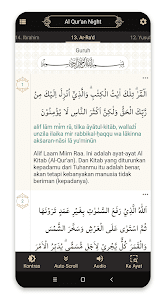 Al Qur'an Night
14. Ibrahim 13. Ar-Ra'd 12. Yusuf
Guruh
بِسْمِ اللَّهِ الرَّحْمَٰنِ الرَّحِيمِ
الۤمّۤرٰۗ تِلْكَ اٰيٰتُ الْكِتٰبِۗ وَالَّذِيْٓ اُنْزِلَ اِلَيْكَ مِنْ
رَّبِّكَ الْحَقُّ وَلٰكِنَّ اَكْثَرَ النَّاسِ لَا يُؤْمِنُوْنَ
alif lām mīm rā, tilka āyātul-kitāb, wallażī
unzila ilaika mir rabbikal-ḥaqqu wa lākinna
akṡaran-nāsi lā yu'minūn
Alif Laam Miim Raa. Ini adalah ayat-ayat Al
Kitab (Al-Qur'an). Dan Kitab yang diturunkan
kepadamu dari Tuhanmu adalah benar, akan
tetapi kebanyakan manusia tidak
beriman (kepadanya).
اَللّٰهُ الَّذِيْ رَفَعَ السَّمٰوٰتِ بِغَيْرِ عَمَدٍ تَرَوْنَهَا
ثُمَّ اسْتَوٰى عَلَى الْعَرْشِ وَسَخَّرَ الشَّمْسَ
وَالْقَمَرَۗ
Kontras Auto-Scroll Audio Ke Ayat